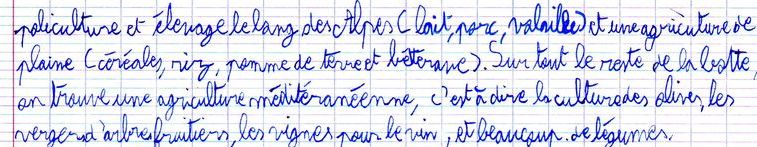 policulture et élevage le lang des Alpes (lait, porc, volaille) et une agriculture de
plaine (céréales, riz, pomme de terre et béterave). Sur tout le reste de la botte,
on trouve une agriculture méditéranéenne, c'est à dire la culture des olives, les
vergers d'arbres fruitiers, les vignes pour le vin, et beaucoup de légumes.